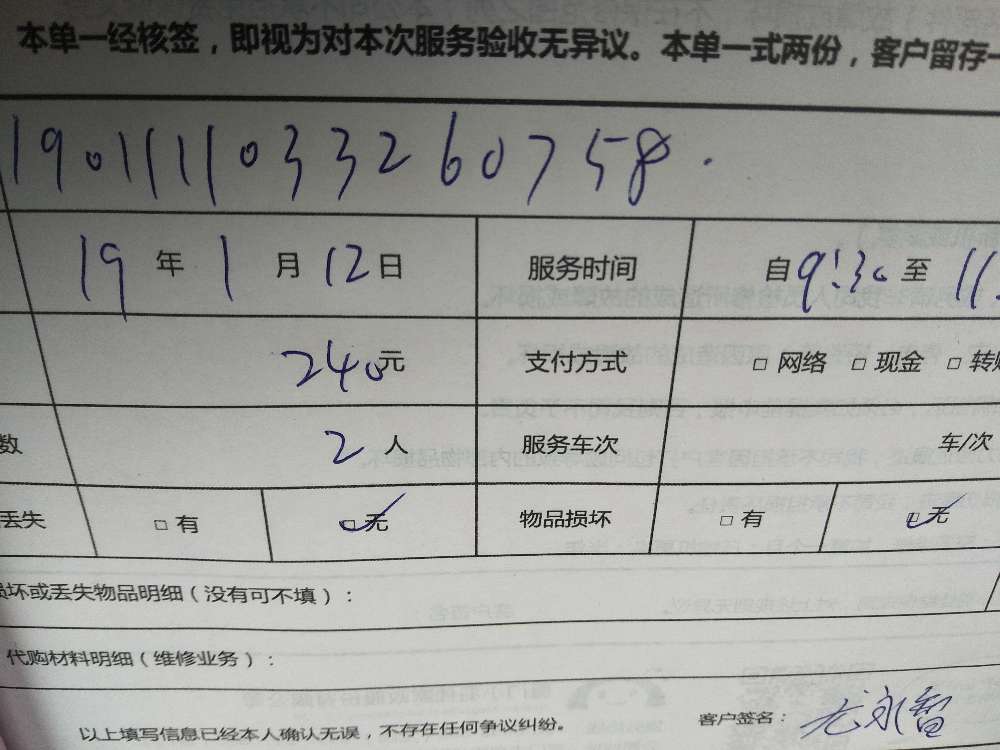 本单一经核签，即视为对本次服务验收无异议。本单一式两份，客户留存一
1901111033260758.
19年1月12日 服务时间 自9:30至11:
240元 支付方式 □网络 □现金 □转账
数 2人 服务车次 车/次
丢失 □有 ☑无 物品损坏 □有 ☑无
损坏或丢失物品明细（没有可不填）：
代购材料明细（维修业务）：
以上填写信息已经本人确认无误，不存在任何争议纠纷。 客户签名：尤永智